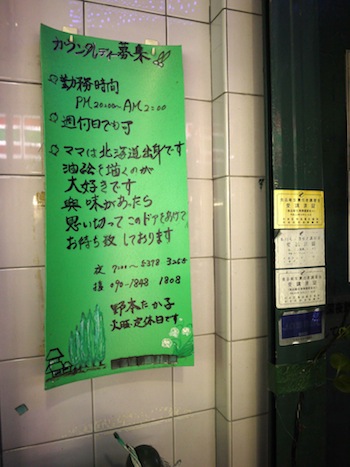 カウンタレディー募集
勤務時間
PM 20:00〜AM 2:00
週何日でも可
ママは北海道出身です
油絵を描くのが
大好きです
興味があったら
思い切ってこのドアをあけて
お待ち致しております
090-1848 1808
野本たか子
定休日です
受講済証
受講済証